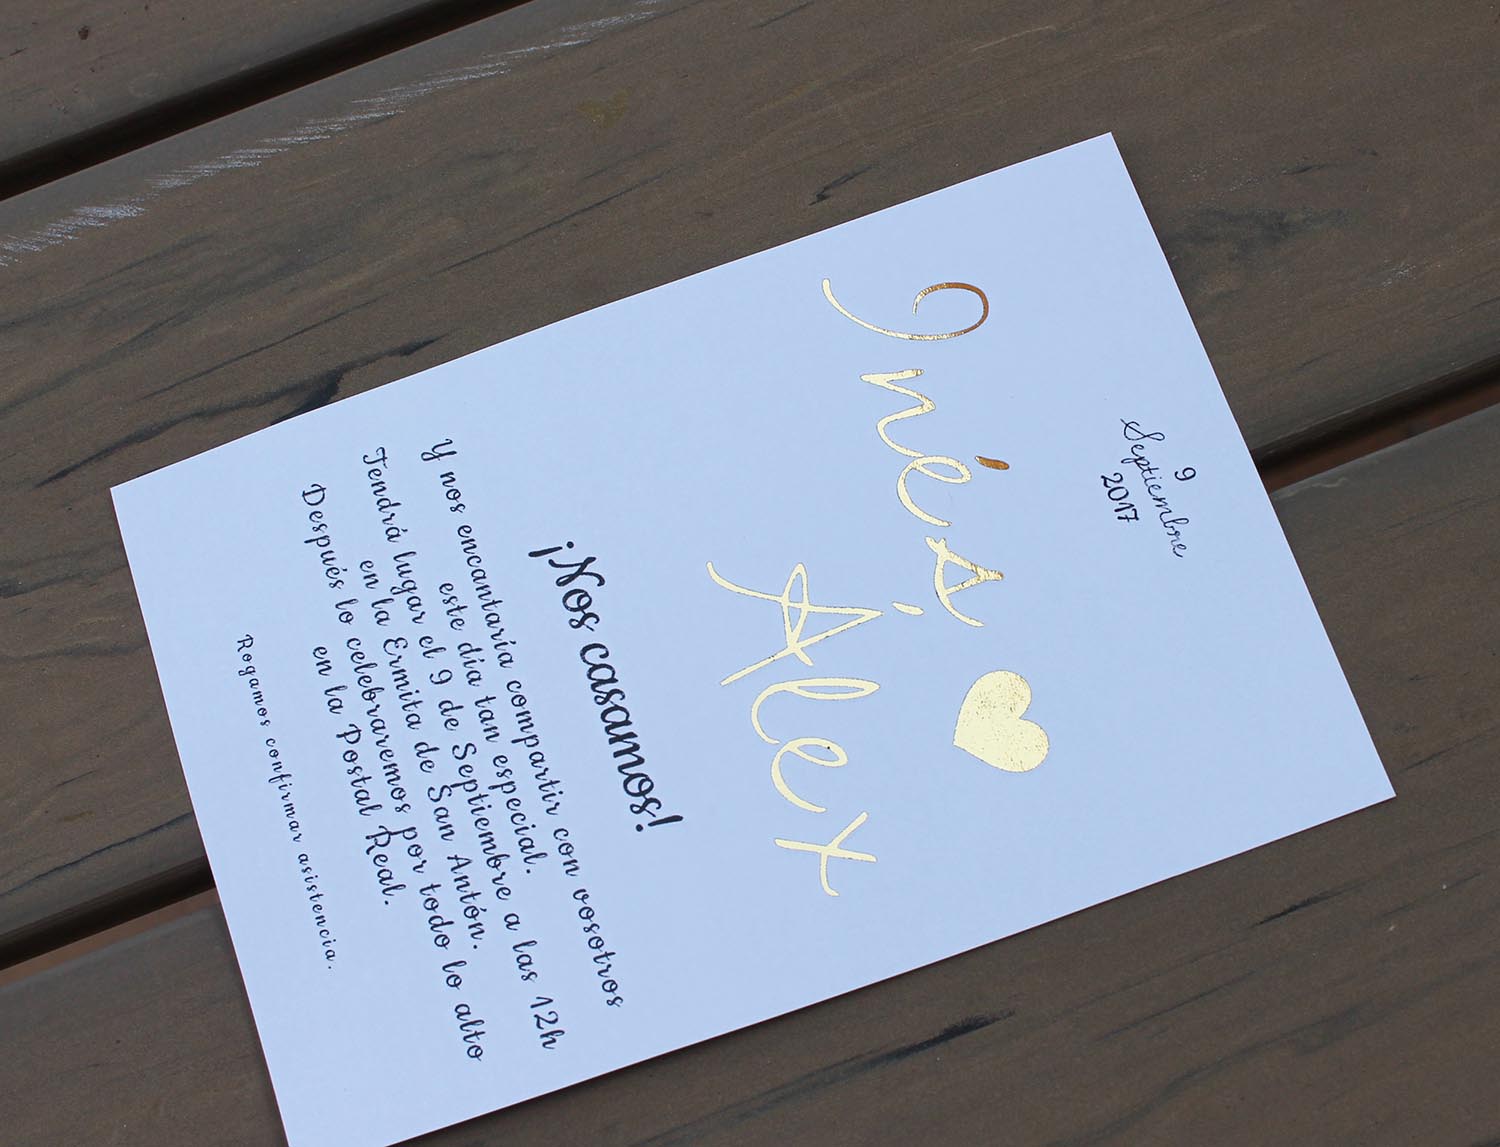 9
Septiembre
2017
Inés
Álex
¡Nos casamos!
Y nos encantaría compartir con vosotros
este día tan especial.
Tendrá lugar el 9 de Septiembre a las 12h
en la Ermita de San Antón.
Después lo celebraremos por todo lo alto
en la Postal Real.
Rogamos confirmar asistencia.